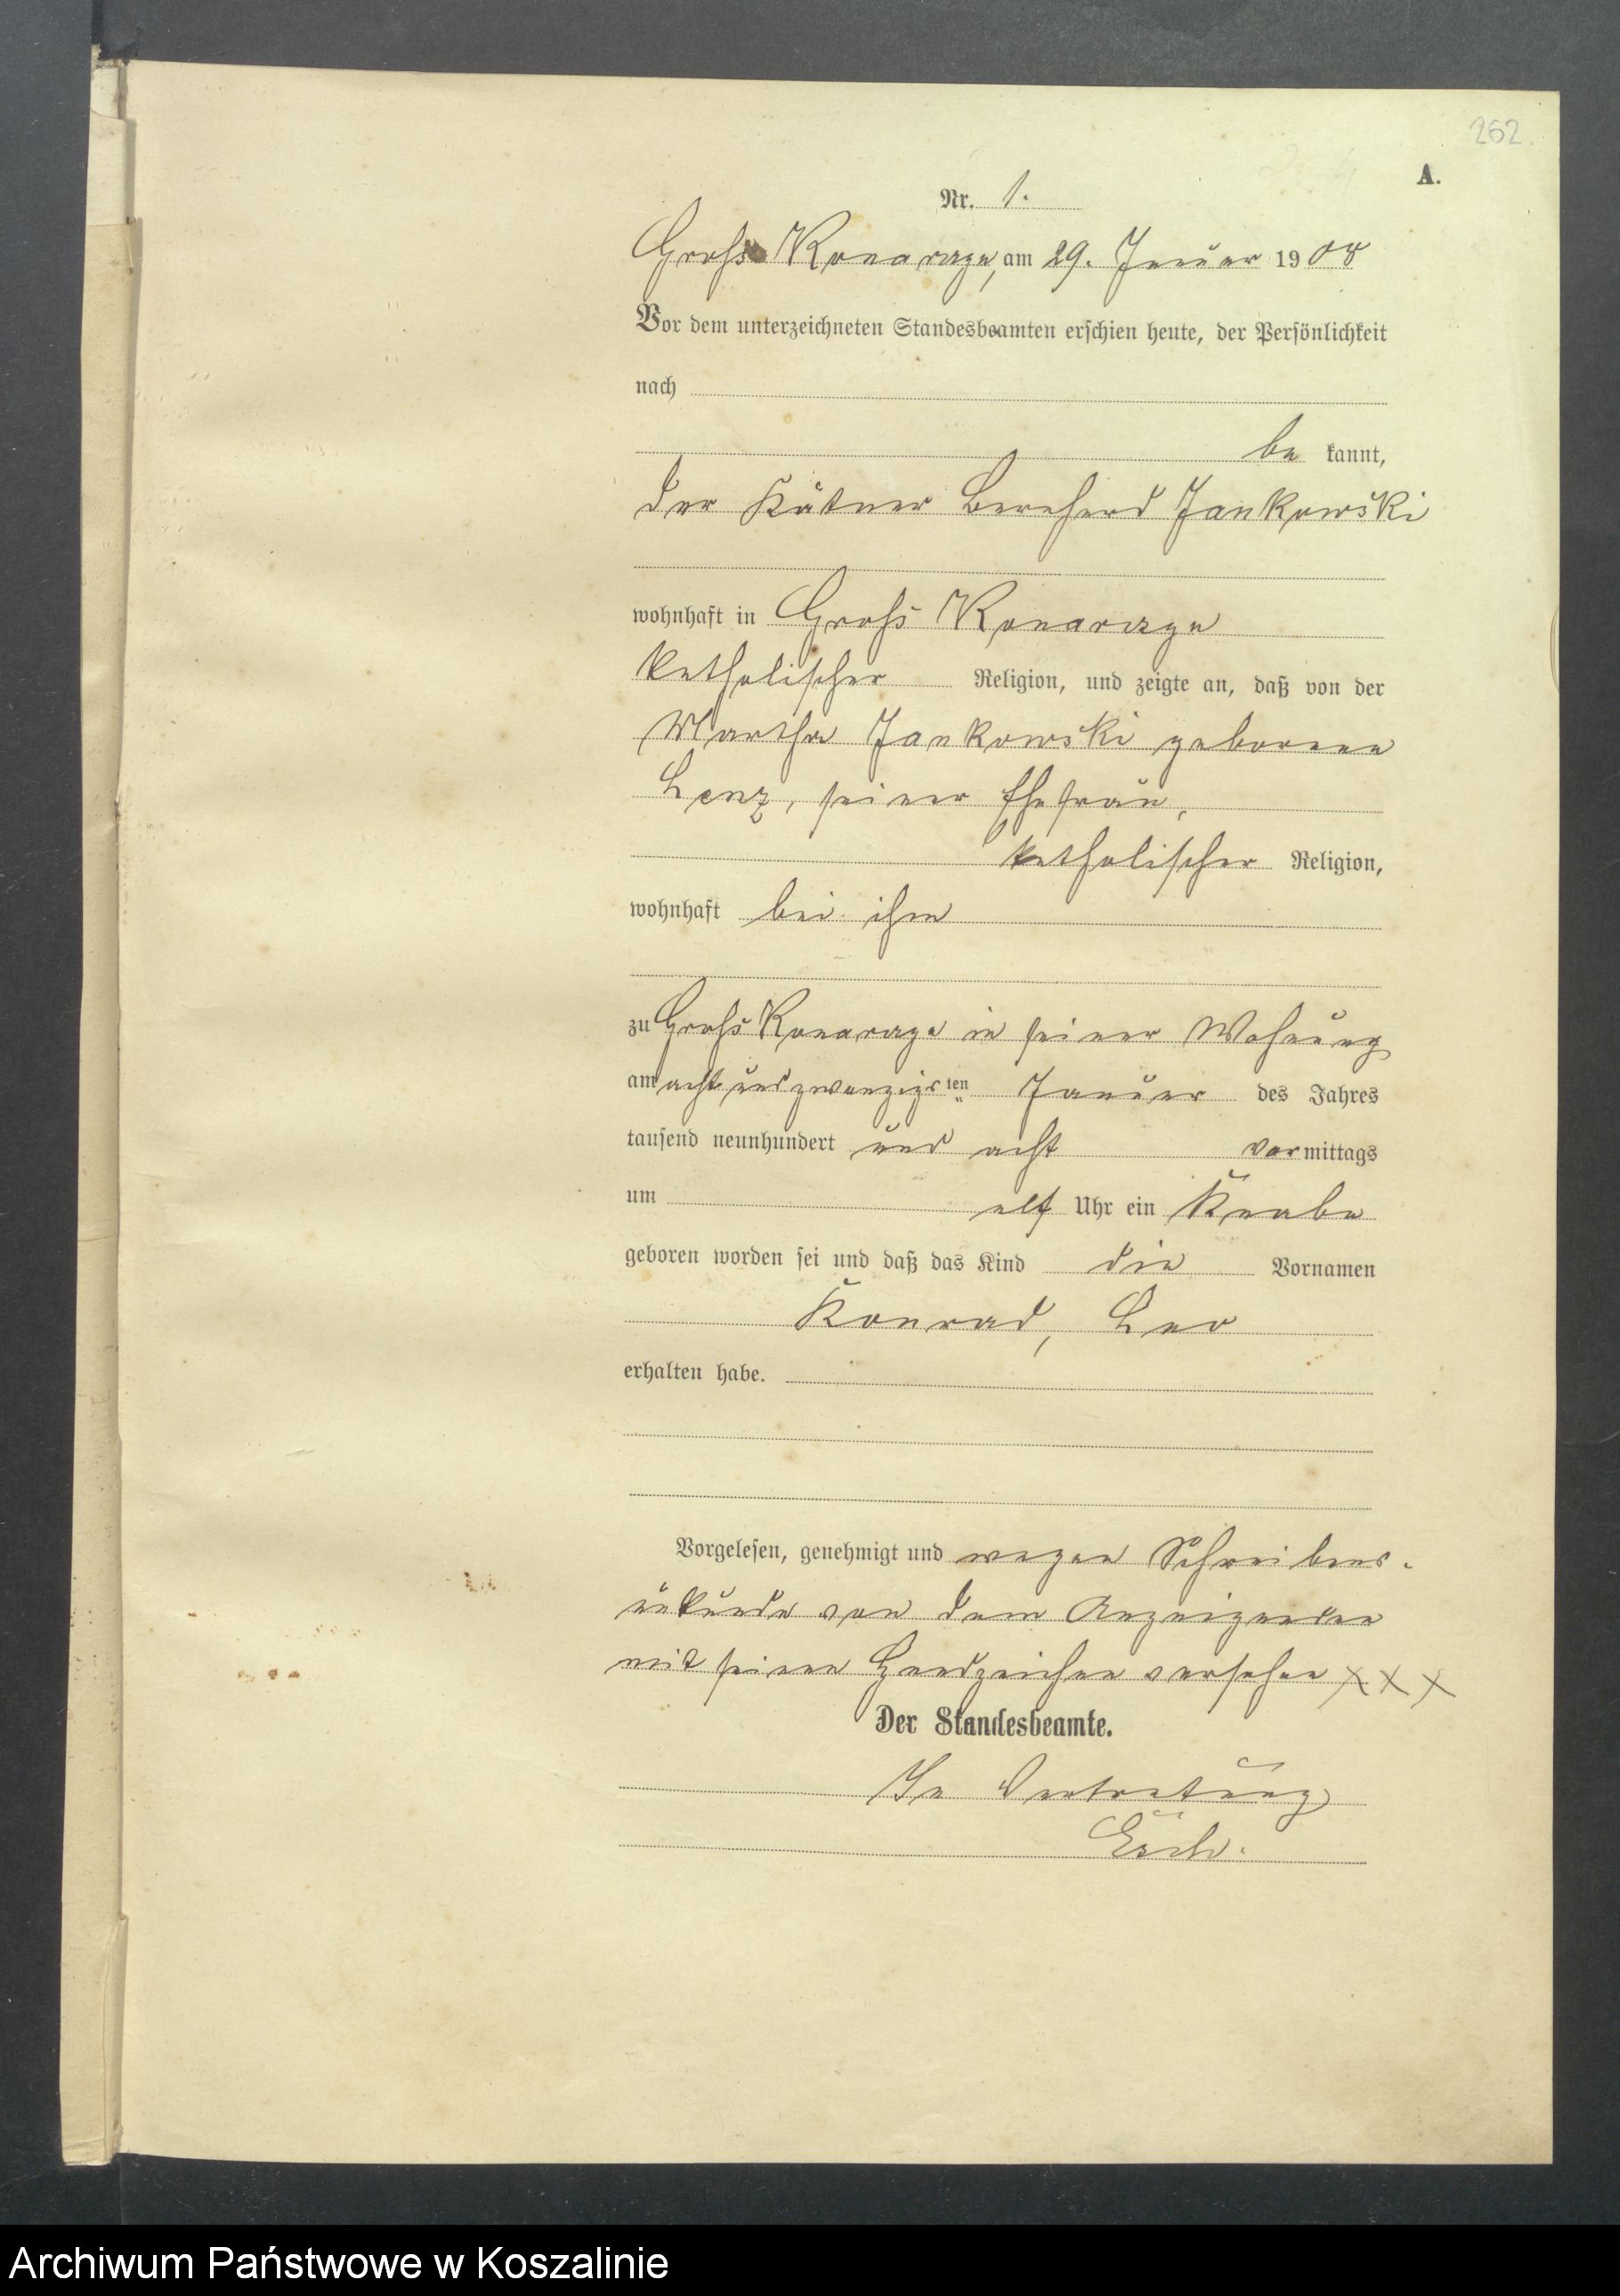 262
A.
Nr. 1.
Gross Konarzyn, am 29. Januar 1908
Vor dem unterzeichneten Standesbeamten erschien heute, der Persönlichkeit
nach
be kannt,
der Kätner Bernhard Jankowski
wohnhaft in Gross Konarzyn
katholischer Religion, und zeigte an, daß von der
Martha Jankowski geborenen
Lenz, seiner Ehefrau,
katholischer Religion,
wohnhaft bei ihm
zu Gross Konarzyn in seiner Wohnung
am acht und zwanzigsten Januar des Jahres
tausend neunhundert und acht vormittags
um elf Uhr ein Knabe
geboren worden sei und daß das Kind die Vornamen
Konrad, Leo
erhalten habe.
Vorgelesen, genehmigt und wegen Schreibens-
unkunde von dem Anzeigenden
mit seinen Handzeichen versehen XXX
Der Standesbeamte.
In Vertretung
Archiwum Państwowe w Koszalinie